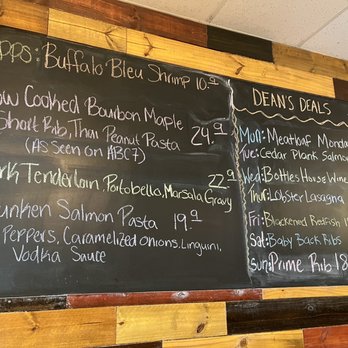 pps: Buffalo Bleu Shrimp 10.9
ow Cooked Bourbon Maple
Short Rib, Thai Peanut Pasta 24.9
(As seen on ABC7)
rk Tenderloin Portobella, Marsala Gravy 22.9
unken Salmon Pasta 19.9
Peppers, Caramelized Onions, Linguini,
Vodka Sauce
DEAN'S DEALS
Mon: Meatloaf Monda
Tue: Cedar Plank Salmon
Wed: Bottles Horse Wine
Thur: Lobster Lasagna
Fri: Blackened Redfish 1
Sat: Baby Back Ribs
Sun: Prime Rib 18